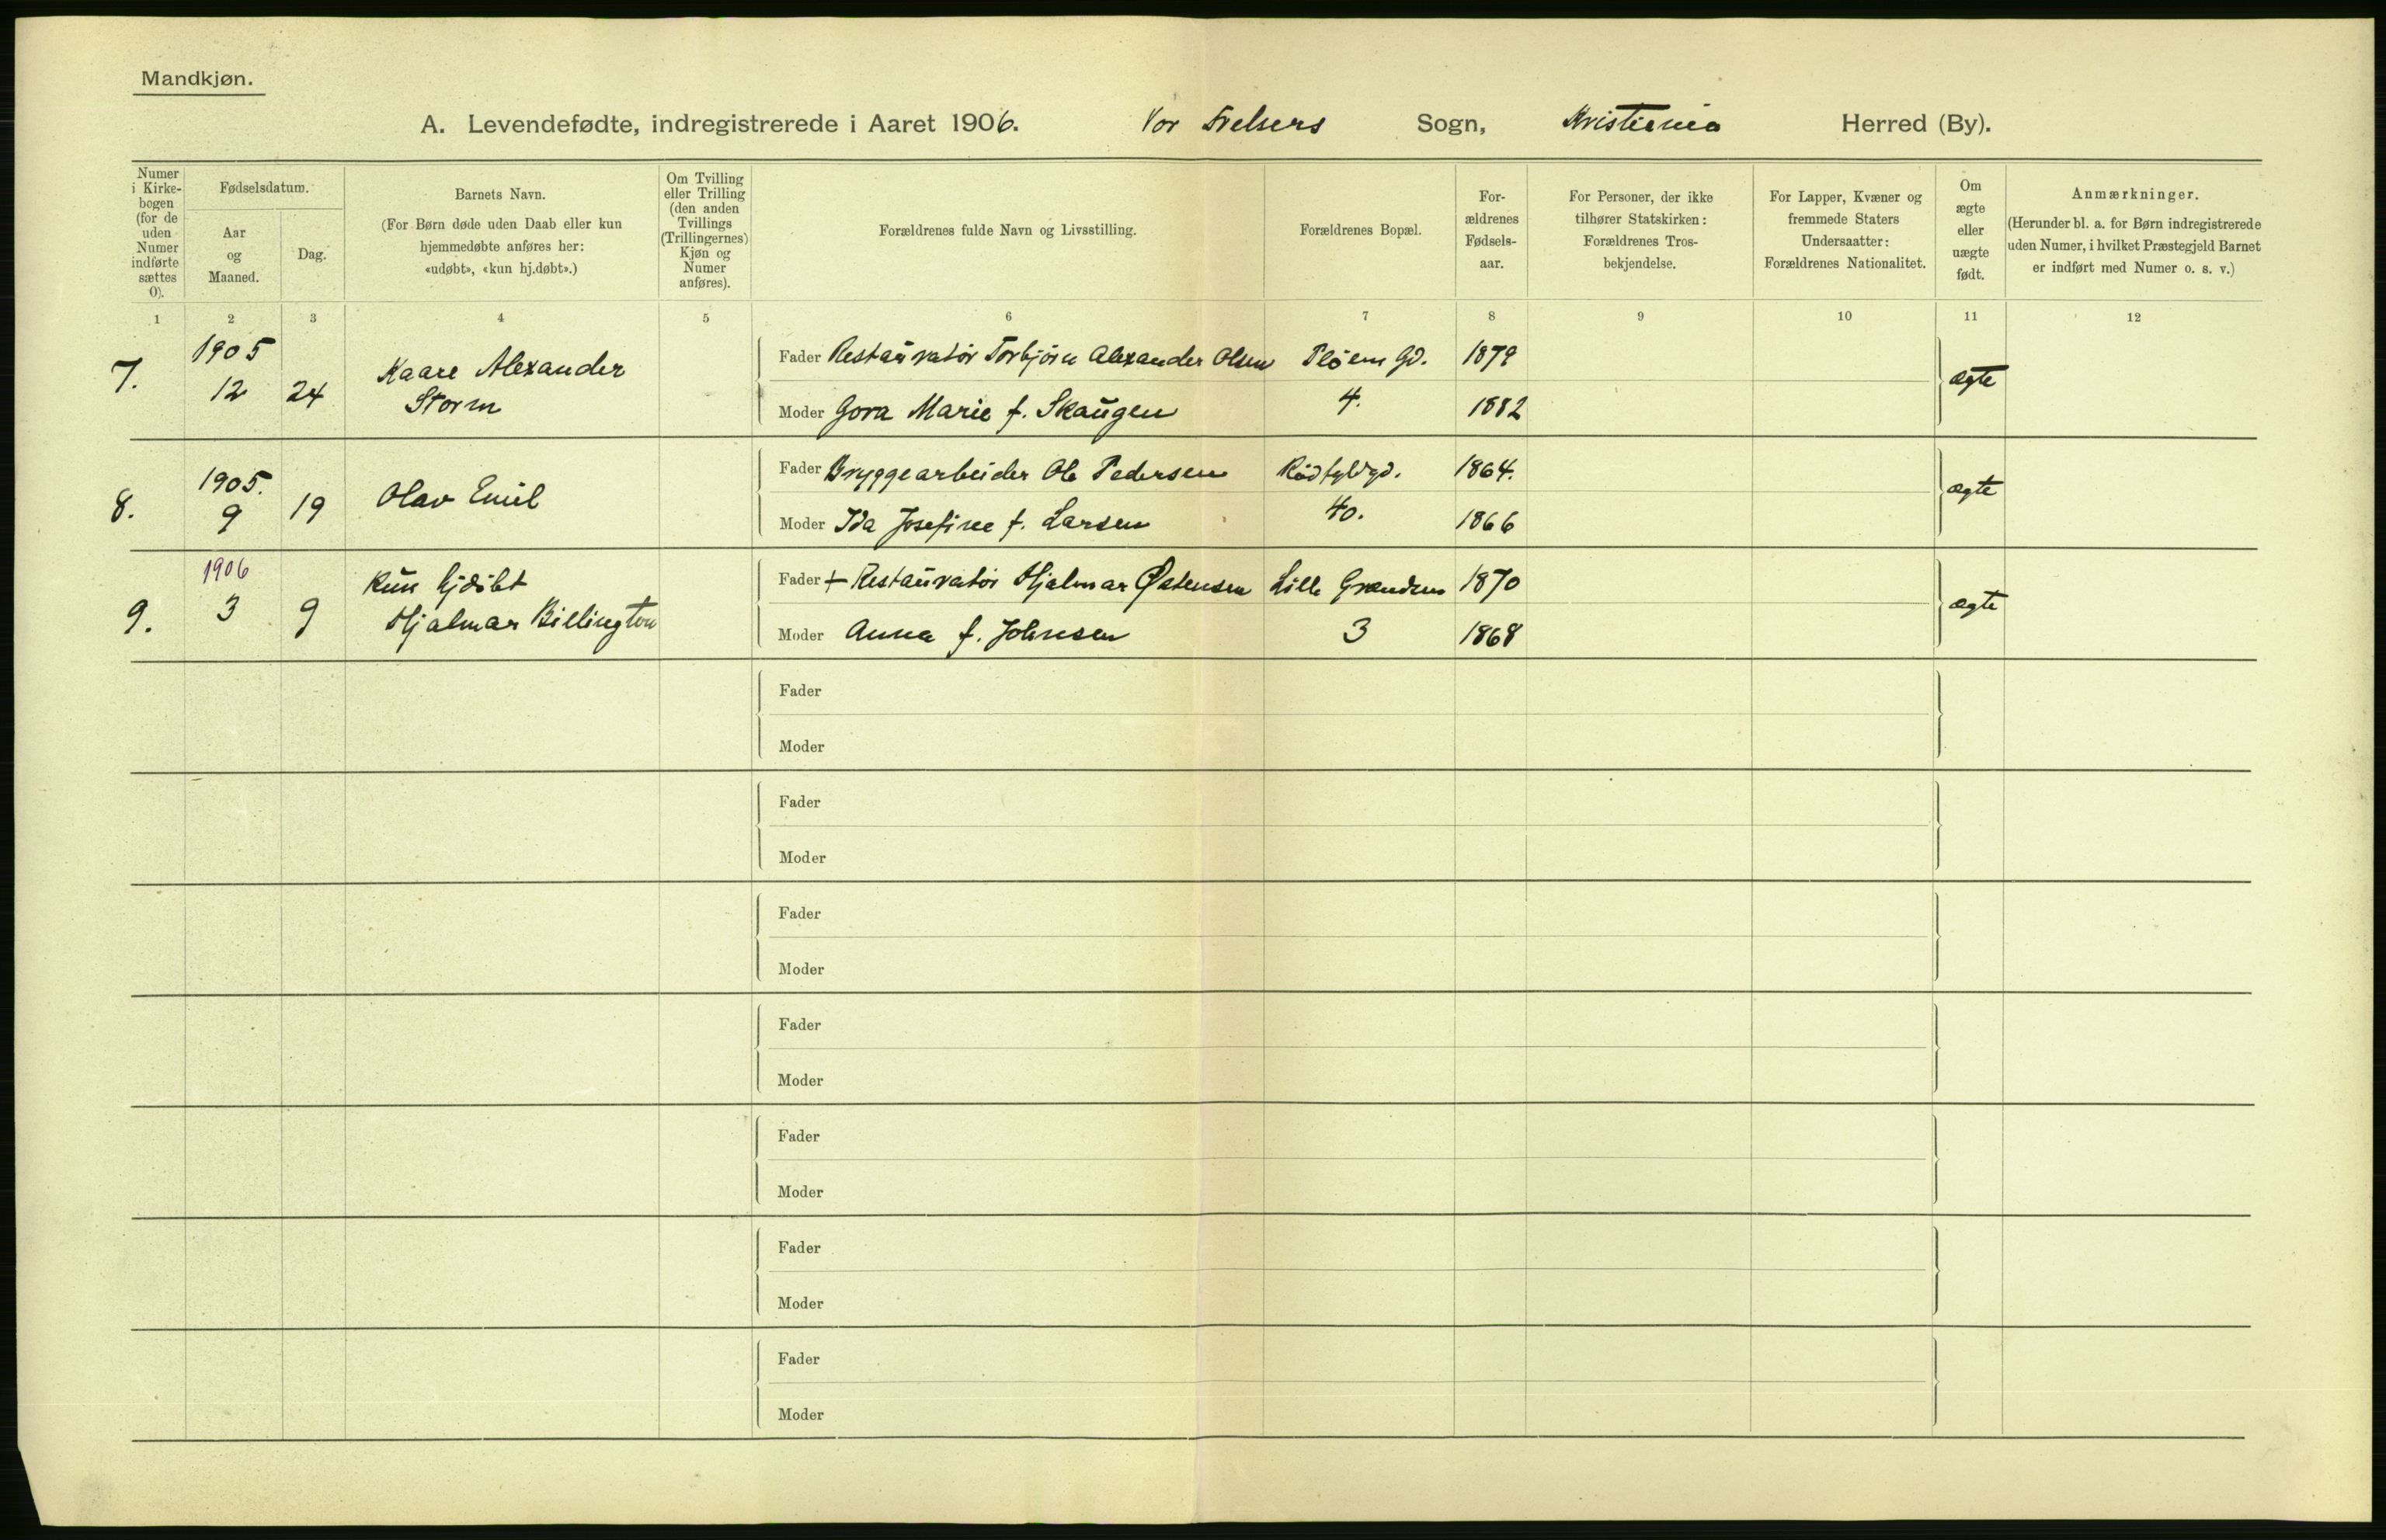 Mandkjøn.
A. Levendefødte, indregistrerede i Aaret 1906. Vor Frelsers Sogn, Kristiania Herred (By).
Numer i Kirkebogen (for de uden Numer indførte sættes 0).
Fødselsdatum.
Aar og Maaned.
Dag.
Barnets Navn.
(For Børn døde uden Daab eller kun hjemmedøbte anføres her: «udøbt», «kun hj.døbt».)
Om Tvilling eller Trilling (den anden Tvillings (Trillingernes) Kjøn og Numer anføres).
Forældrenes fulde Navn og Livsstilling.
Forældrenes Bopæl.
For-ældrenes Fødsels-aar.
For Personer, der ikke tilhører Statskirken: Forældrenes Tros-bekjendelse.
For Lapper, Kvæner og fremmede Staters Undersaatter: Forældrenes Nationalitet.
Om ægte eller uægte født.
Anmærkninger.
(Herunder bl. a. for Børn indregistrerede uden Numer, i hvilket Præstegjeld Barnet er indført med Numer o. s. v.)
1 2 3 4 5 6 7 8 9 10 11 12
7. 1905 12 24 Kaare Alexander Storm
Fader Restauratør Torbjørn Alexander Olsen Pløens Gd. 1879
Moder Gora Marie f. Skaugen 4. 1882
ægte
8. 1905. 9 19 Olav Emil
Fader Bryggearbeider Ole Pedersen Rødfyldgd. 1864.
Moder Ida Josefine f. Larsen 40. 1866
ægte
9. 1906 3 9 Kun hjdøbt Hjalmar Billington
Fader + Restauratør Hjalmar Østensen Lille Grændsen 1870
Moder Anna f. Johnsen 3 1868
ægte
Fader
Moder
Fader
Moder
Fader
Moder
Fader
Moder
Fader
Moder
Fader
Moder
Fader
Moder